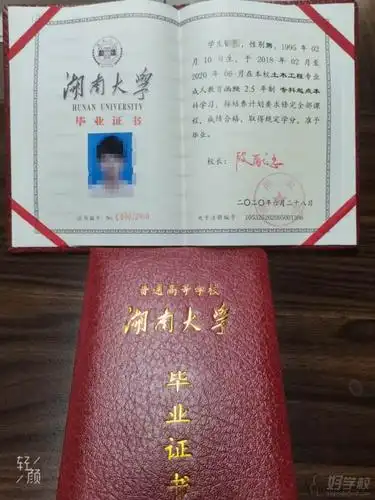 湖南大学
HUNAN UNIVERSITY
毕业证书
学生 ，性别男，1995年02
月10日生，于2018年02月至
2020年06月在本校土木工程专业
成人教育函授2.5年制 专科起点本
科学习，按培养计划要求修完全部课
程，成绩合格，取得规定学分，准予
毕业。
校长：
证书编号 No
电子注册编号
二〇二〇年六月二十八日
普通高等学校
湖南大学
毕业证书
轻颜
好学校